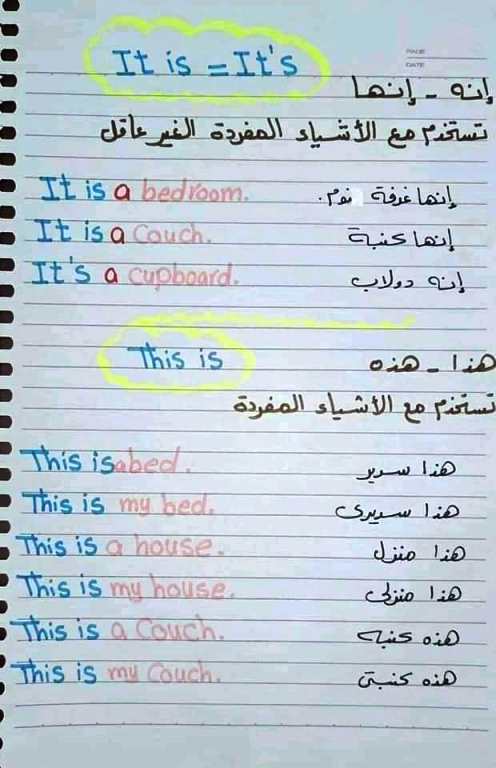 PAGE
DATE
It is = It's
إنه - إنها
تستخدم مع الأشياء المفردة الغير عاقل
It is a bedroom. إنها غرفة نوم.
It is a Couch. إنها كنبة
It's a cupboard. إنه دولاب
This is هذا - هذه
تستخدم مع الأشياء المفردة
This is a bed. هذا سرير
This is my bed. هذا سريرى
This is a house. هذا منزل
This is my house. هذا منزلى
This is a Couch. هذه كنبه
This is my Couch. هذه كنبتى